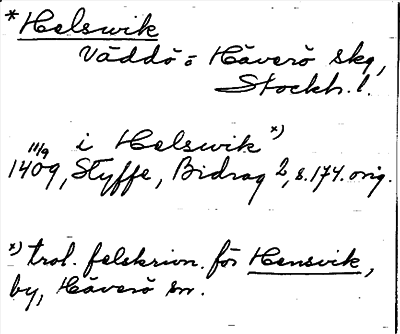 *Helswik
Väddö o Häverö skg,
Stockh. l.
i Helswik x)
11/9 1409, Styffe, Bidrag 2, s. 174. orig.
x) trol. felskrivn. för Hensvik,
by, Häverö sn.